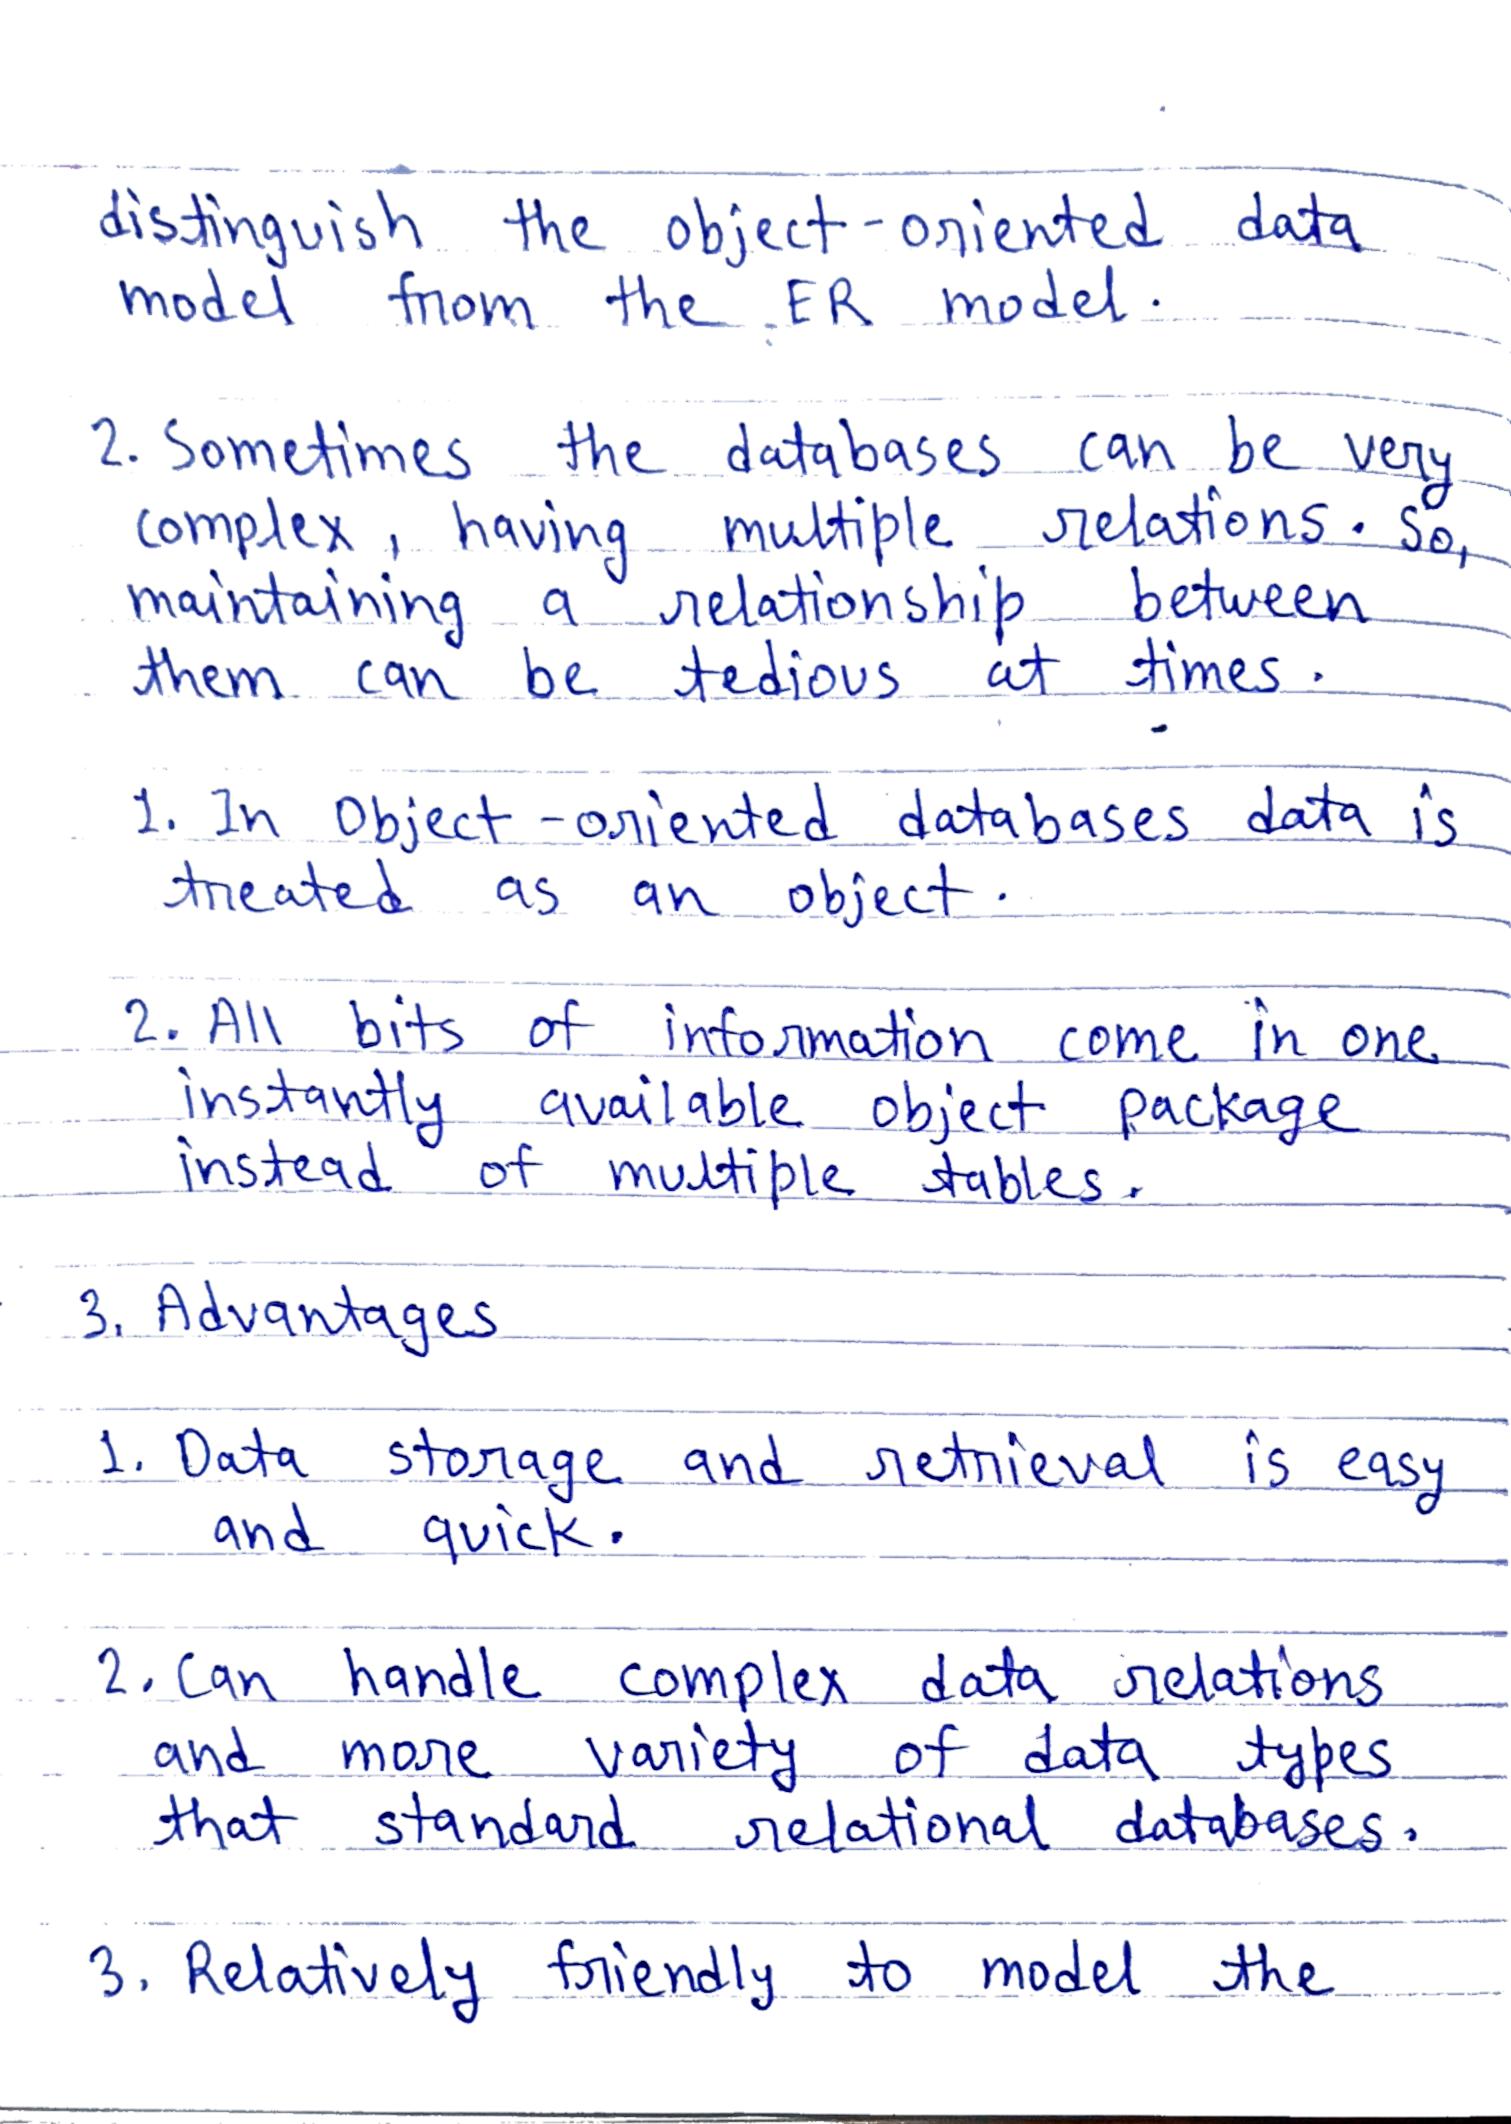 distinguish the object-oriented data
model from the ER model.
2. Sometimes the databases can be very
complex, having multiple relations. So,
maintaining a relationship between
them can be tedious at times.
1. In Object-oriented databases data is
treated as an object.
2. All bits of information come in one
instantly available object package
instead of multiple tables.
3. Advantages
1. Data storage and retrieval is easy
and quick.
2. Can handle complex data relations
and more variety of data types
that standard relational databases.
3. Relatively friendly to model the